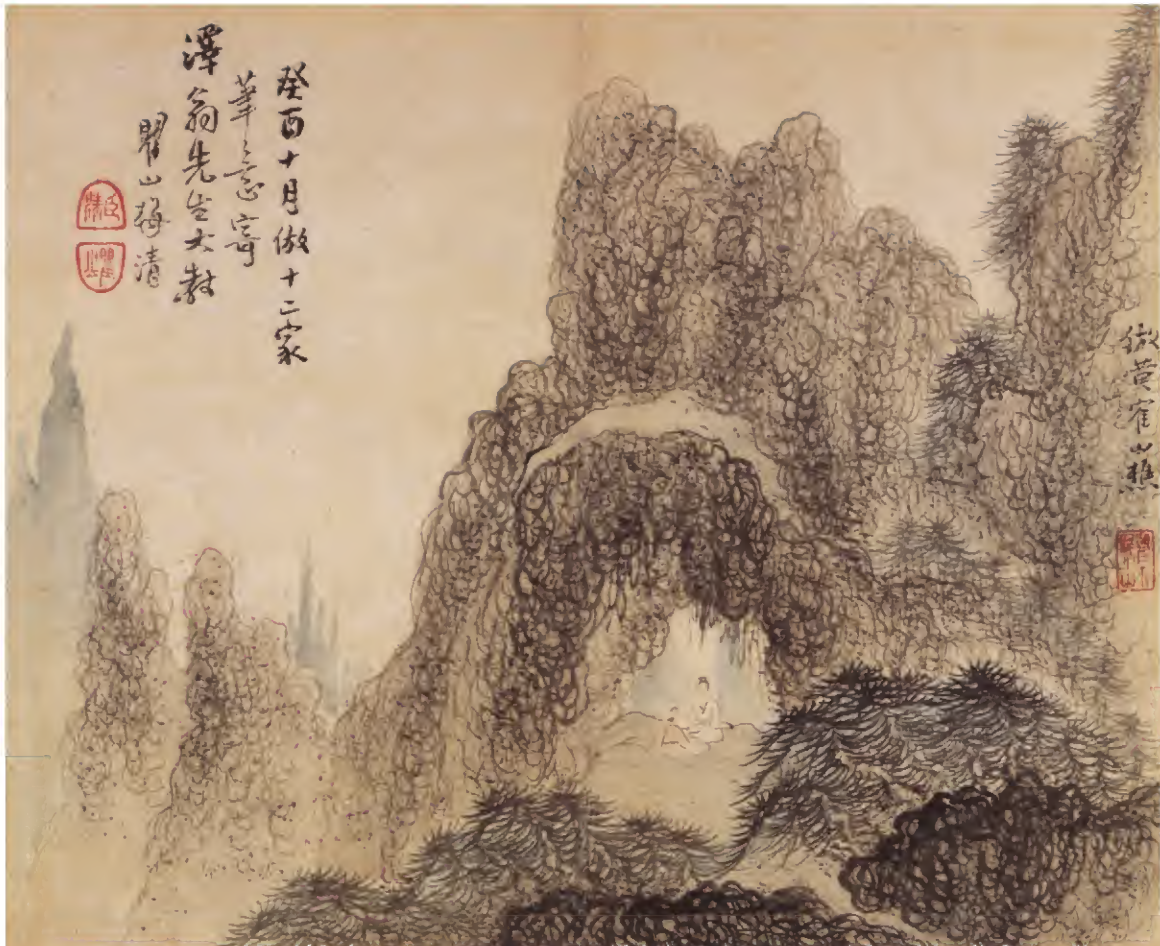 倣黄寉山樵
癸酉十月倣十二家
筆意寄
澤翁先生大教
瞿山梅清